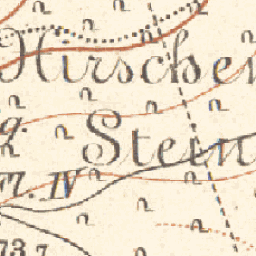 Hirschen
g.
Stein
Fl. IV
73,7